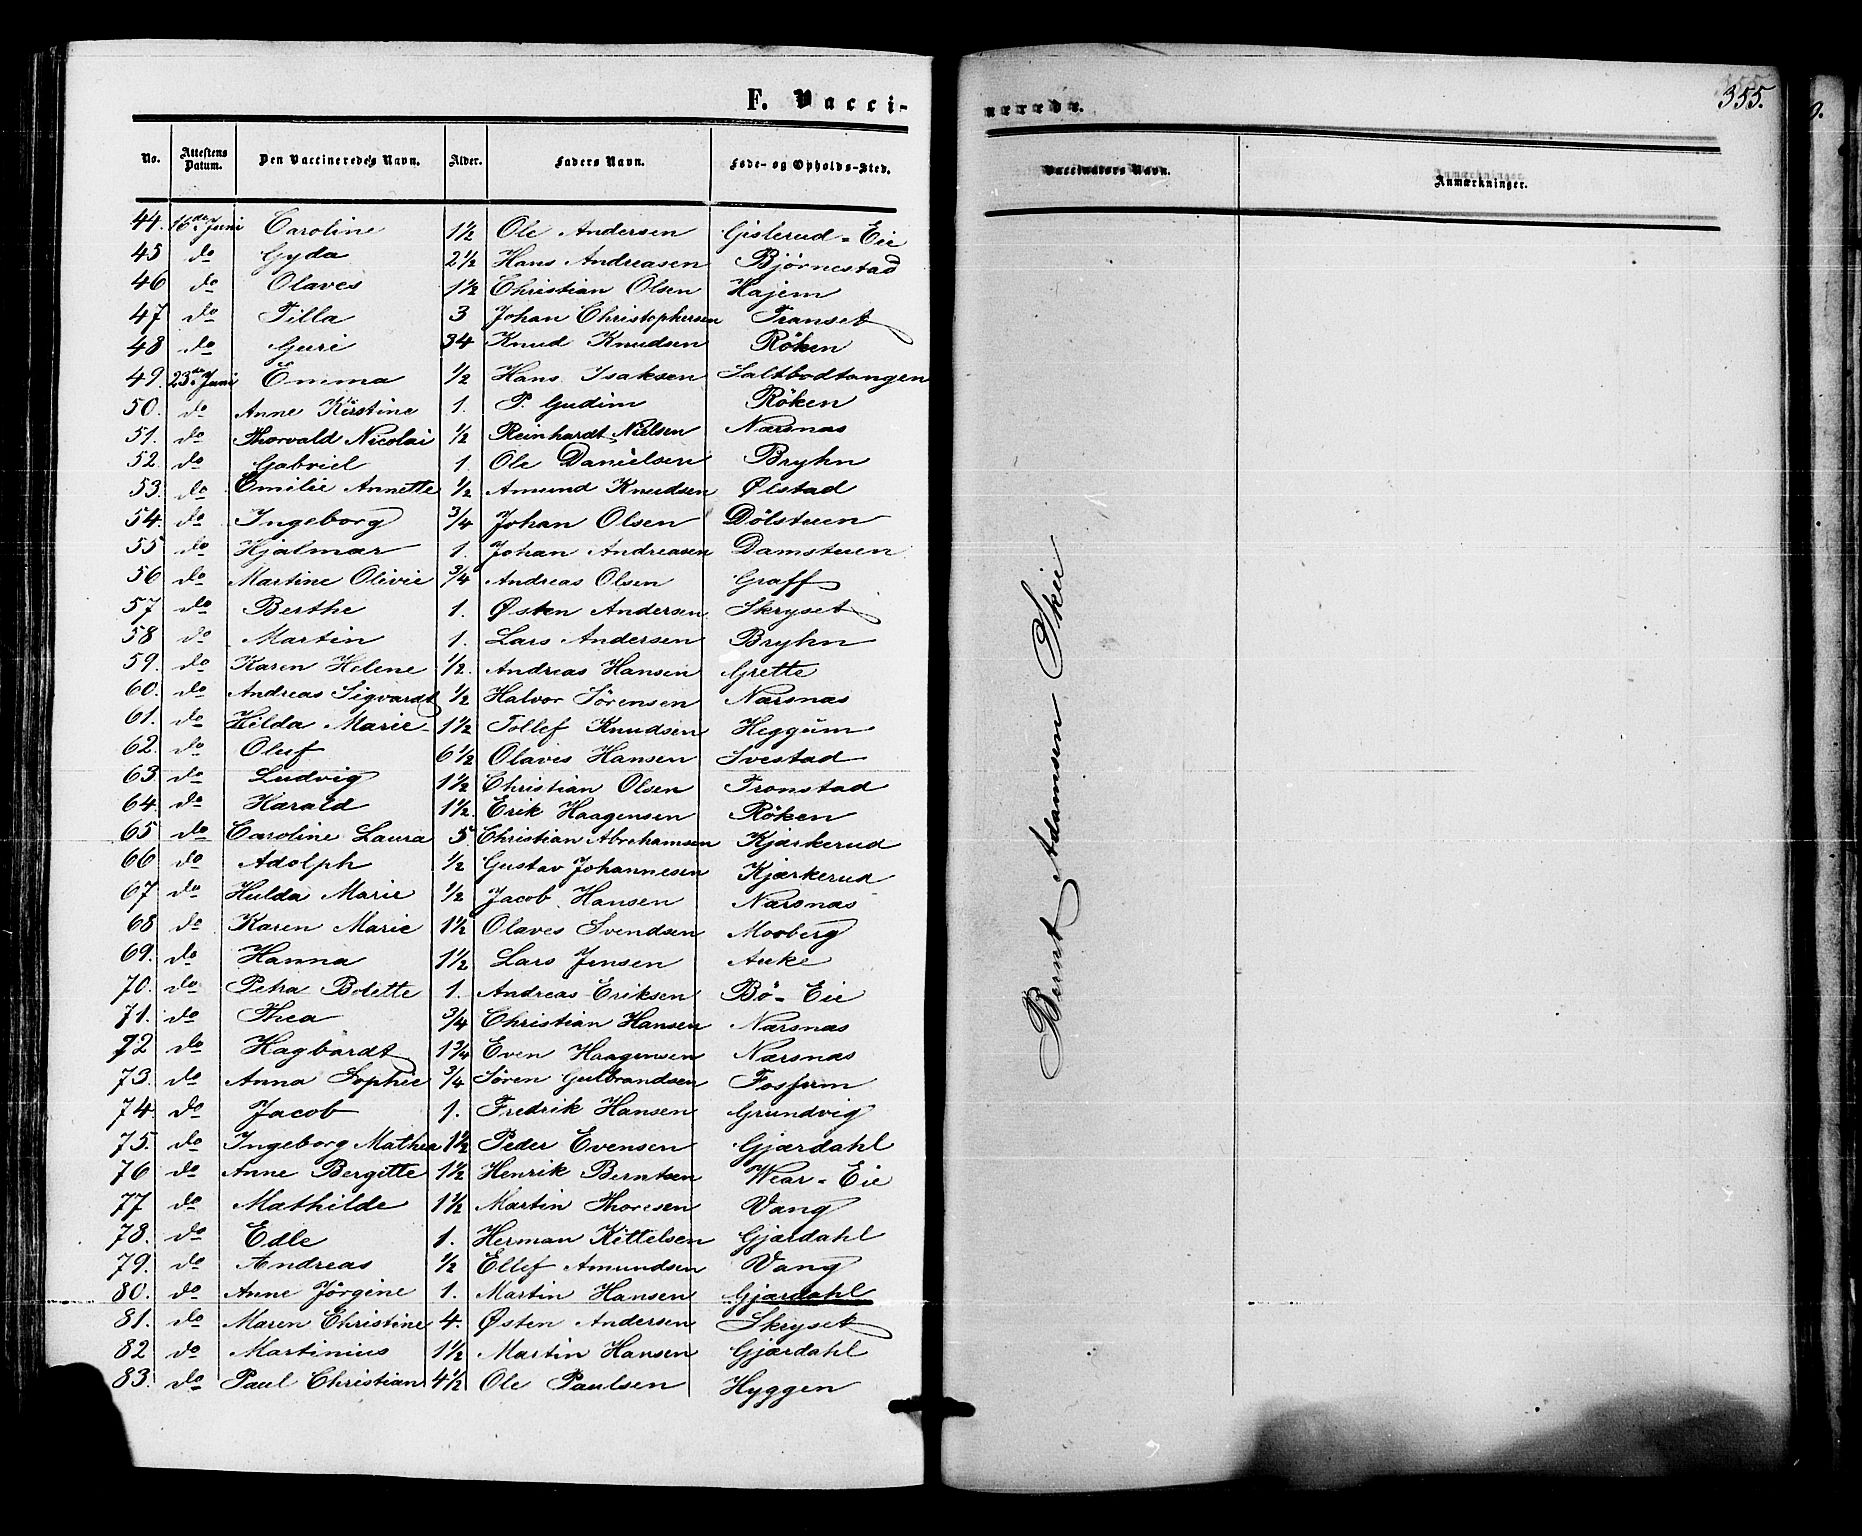 F. Vacci-
No. Attestens Datum. Den Vaccineredes Navn. Alder. Faders Navn. Føde- og Opholds-Sted.
44. 16de Juni Caroline 1½ Ole Andersen Gislerud-Eie
45 do Gyda 2½ Hans Andreasen Bjørnestad
46 do Olaves 1½ Christian Olsen Hajem
47 do Tilla 3 Johan Christophersen Transet
48 do Guri 34 Knud Knudsen Röken
49. 23de Juni Emma ½ Hans Isaksen Saltbodtangen
50. do Anne Kirstine 1. P. Gudim Röken
51. do Thorvald Nicolai ½ Reinhardt Nielsen Narsnas
52. do Gabriel 1. Ole Danielsen Bryhn
53. do Emilie Annette ½ Amund Knudsen Ølstad
54. do Ingeborg ¾ Johan Olsen Dölstuen
55 do Hjalmar 1. Johan Andreasen Damstuen
56 do Martine Olivie ¾ Andreas Olsen Graff
57 do Berthe 1. Østen Andersen Skryset
58 do Martin 1. Lars Andersen Bryhn
59. do Karen Helene ½. Andreas Hansen Grette
60. do Andreas Sigvardt ½ Halvor Sörensen Narsnas
61. do Hilda Marie 1½ Tollef Knudsen Heggum
62. do Oluf 6½ Olaves Hansen Svestad
63 do Ludvig 1½ Christian Olsen Tronstad
64. do Harald 1½. Erik Haagensen Röken
65 do Caroline Laura 5. Christian Abrahamsen Kjarkerud
66 do Adolph ½ Gustav Johannesen Kjærkerud
67 do Hulda Marie ½ Jacob Hansen Narsnas
68 do Karen Marie 1½ Olaves Svendsen Mooberg
69. do Hanna 1½ Lars Jensen Auke
70. do Petra Bolette 1. Andreas Eriksen Bö-Eie
71. do Thea ¾ Christian Hansen Narsnas
72 do Hagbardt 1¾ Even Haagensen Narsnas
73. do Anna Sophie ¾ Sören Gulbrandsen Fosfum
74. do Jacob 1. Fredrik Hansen Grundvig
75. do Ingeborg Mathea 1½ Peder Evensen Gjardahl
76 do Anne Bergitte 1½ Henrik Berntsen Wear-Eie
77 do Mathilde 1½ Martin Thoresen Vang
78. do Edle 1. Herman Kittelsen Gjardahl
79. do Andreas ½ Ellef Amundsen Vang
80. do Anne Jörgine 1. Martin Hansen Gjardahl
81. do Maren Christine 4. Østen Andersen Skryset
82 do Martinius 1½ Martin Hansen Gjardahl
83. do Paul Christian 4½ Ole Paulsen Hyggen
355.
nerede.
Vaccinators Navn. Anmærkninger.
Bernt Adamsen Skie